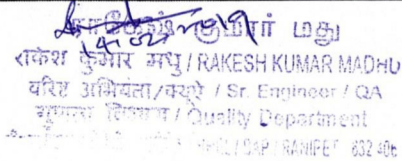 குமார் மது
राकेश कुमार मधु / RAKESH KUMAR MADHU
वरिष्ठ अभियंता/क्यूए / Sr. Engineer / QA
गुणता विभाग / Quality Department
BAP / RANIPET 632 406